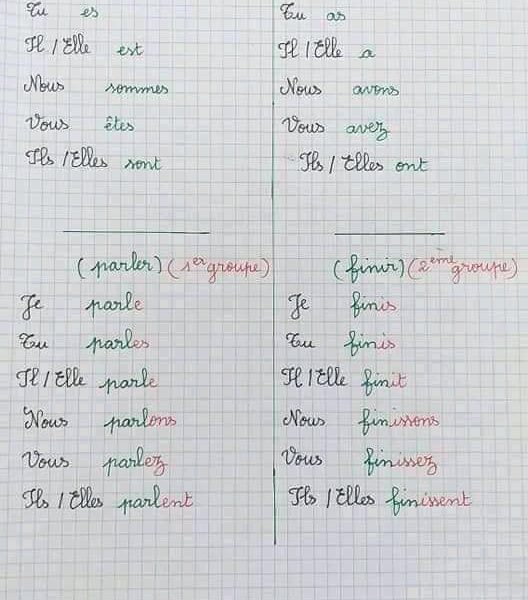 Tu es
Il / Elle est
Nous sommes
Vous êtes
Ils / Elles sont
Tu as
Il / Elle a
Nous avons
Vous avez
Ils / Elles ont
(parler) (1er groupe)
Je parle
Tu parles
Il / Elle parle
Nous parlons
Vous parlez
Ils / Elles parlent
(finir) (2ème groupe)
Je finis
Tu finis
Il / Elle finit
Nous finissons
Vous finissez
Ils / Elles finissent